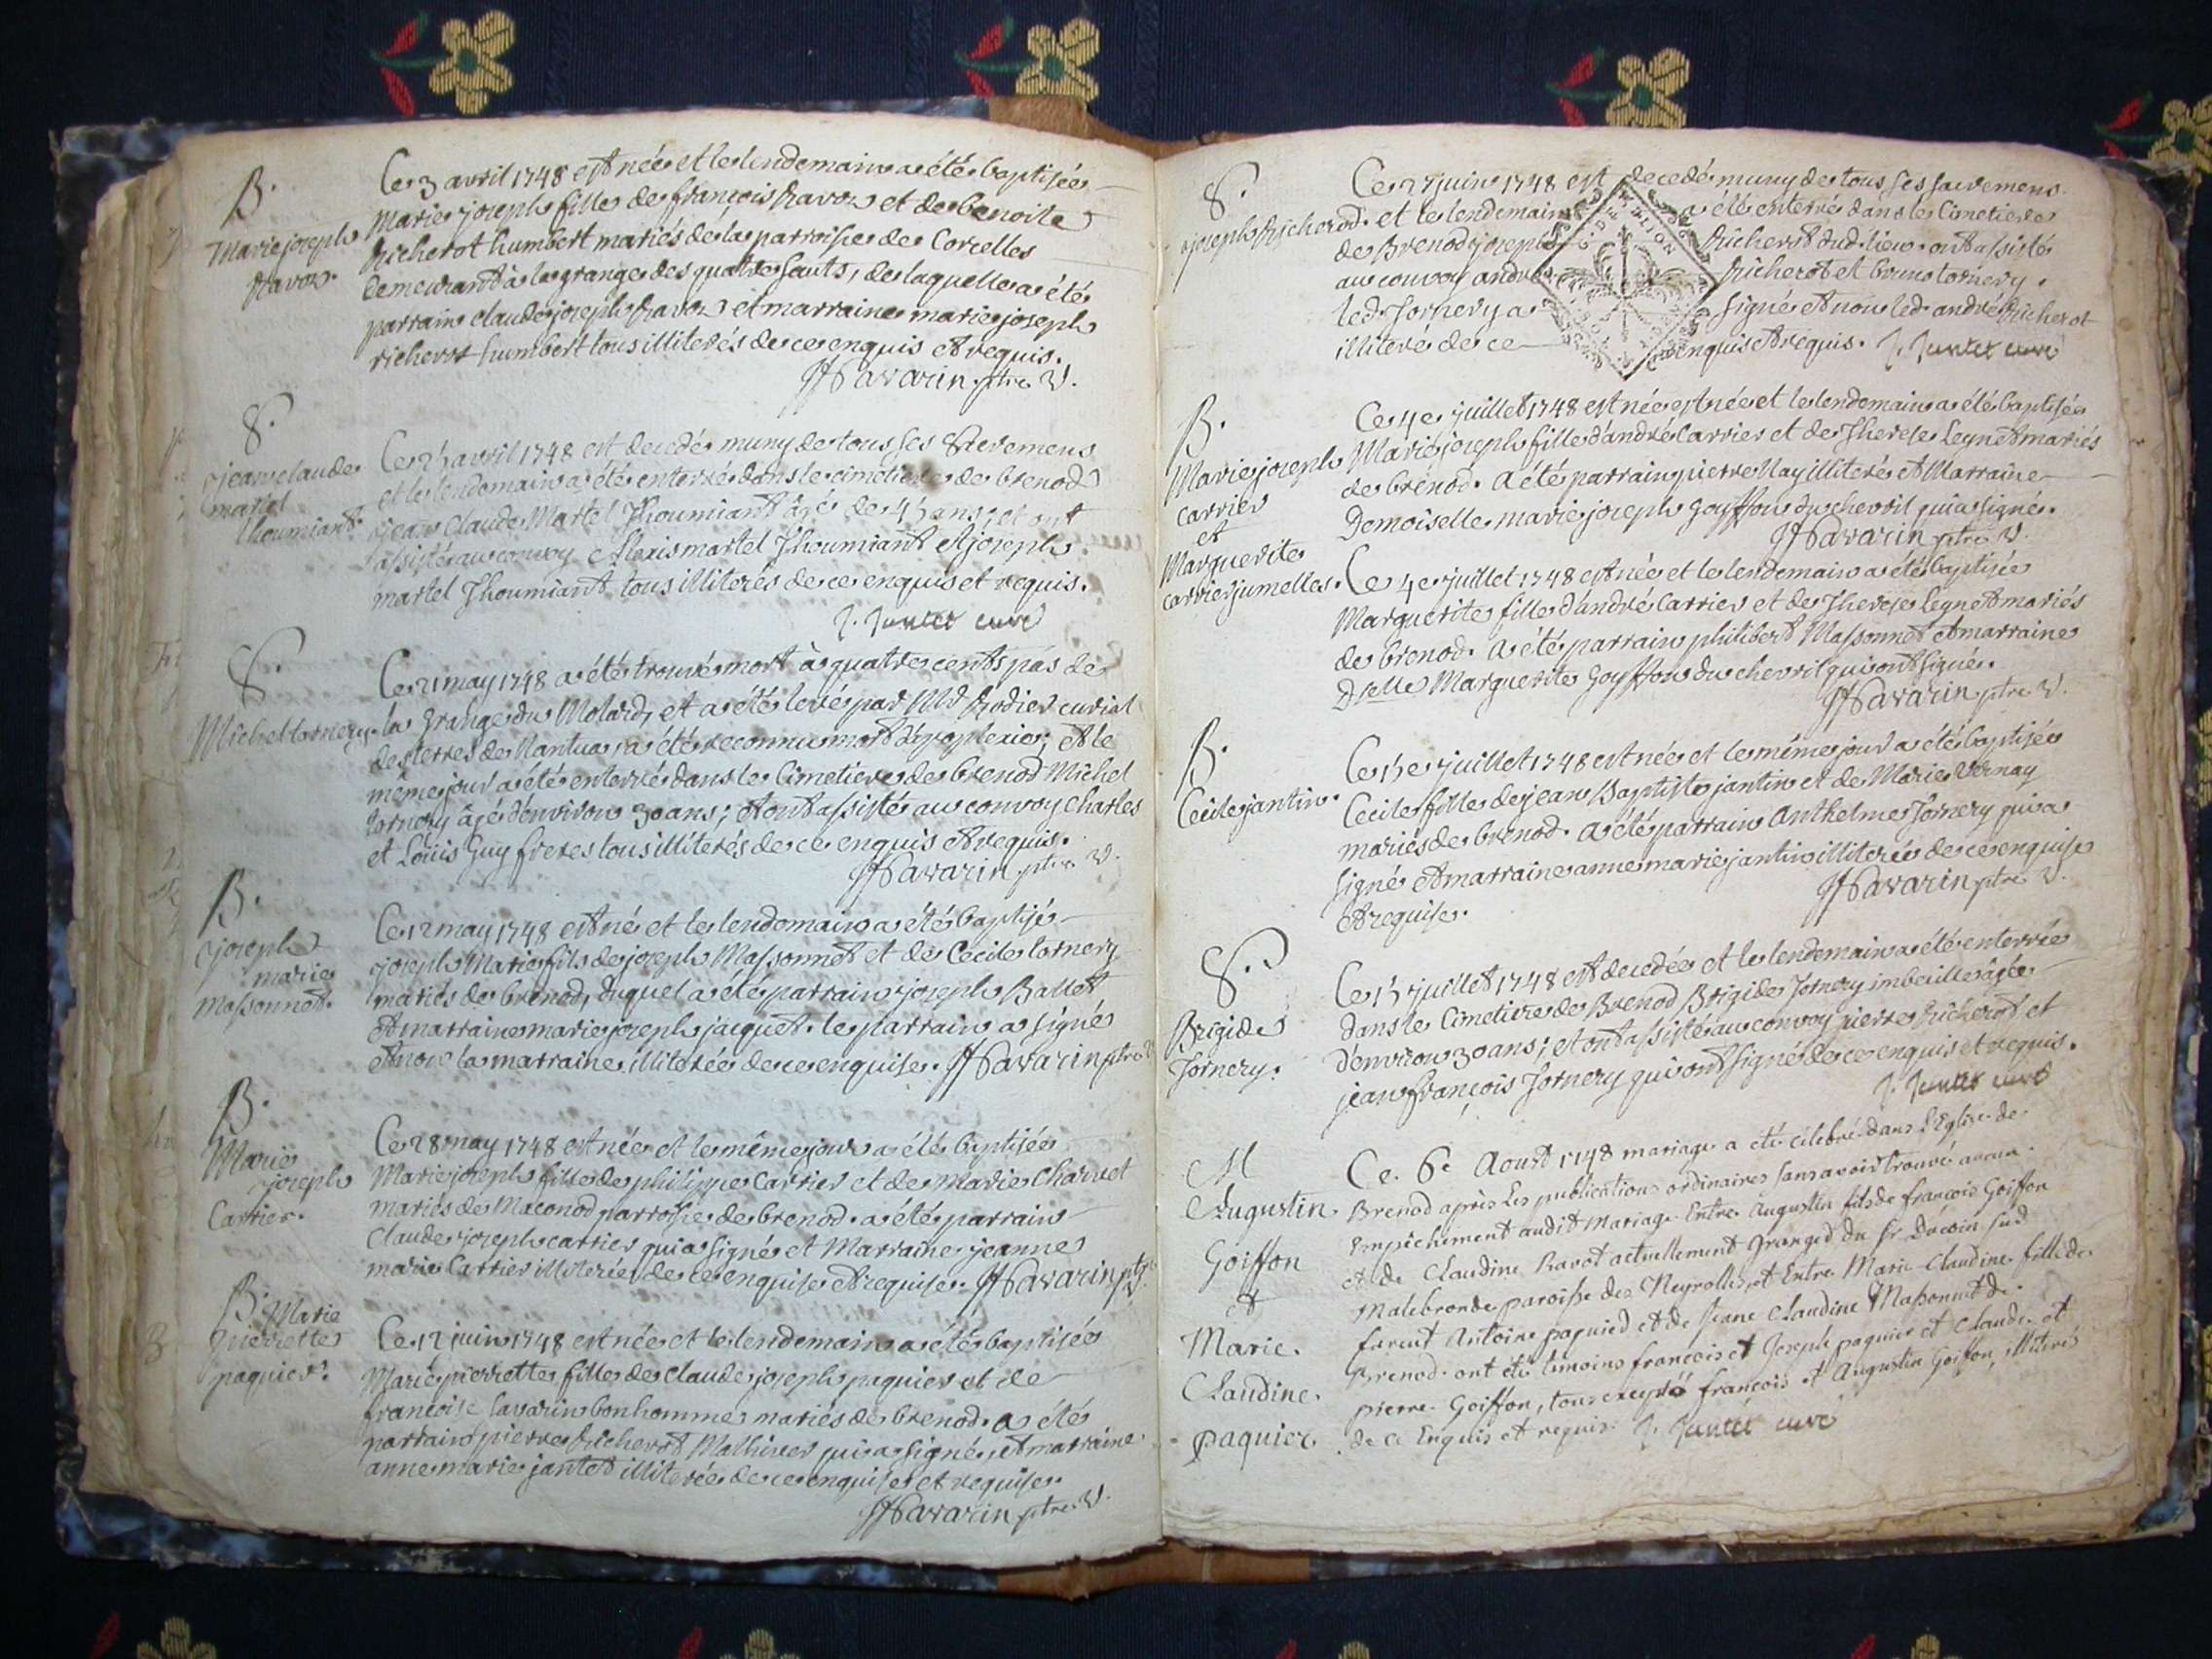 B.
Marie joseph
Ravox.
Ce 3 avril 1748 est née et le lendemain a été baptisée
Marie joseph fille de françois Ravox et de benoite
Richerot humbert mariés de la parroisse de Corcelles
demeurant à la grange des quatre sauts, de laquelle a été
parrain claude joseph Ravox et marraine marie joseph
richerot humbert tous illiterés de ce enquis et requis.
Savarin ptre V.
S.
jean claude
martel
thoumiant.
Ce avril 1748 est decedé muny de tous ses Sacremens
et le lendemain a été enterré dans le cimetiere de brenod
jean Claude Martel Thoumiant âgé de ans, et ont
assisté au convoy Alexis martel Thoumiant et joseph
martel Thoumiant tous illiterés de ce enquis et requis.
J. Jantet curé
S.
Michel tornery.
Ce 21 may 1748 a été trouvé mort à quatre cents pas de
la grange du Molard, et a été levé par Rodier curial
des terres de Nantua, a été reconnu mort d'apoplexie; et le
même jour a été enterré dans le Cimetiere de brenod Michel
tornery âgé d'environ 30 ans; et ont assisté au convoy Charles
et Loüis Guy freres tous illiterés de ce enquis et requis.
Savarin ptre V.
B.
joseph
marie
Massonnet.
Ce 12 may 1748 est né et le lendemain a été baptisé
joseph Marie fils de joseph Massonnet et de Cecile tornery
mariés de brenod, duquel a été parrain joseph Ballet
et marraine marie joseph jacquet. le parrain a signé
et non la marraine illiterée de ce enquise. Savarin ptre V
B.
Marie
joseph
Carrier.
Ce 28 may 1748 est née et le même jour a été baptisée
Marie joseph fille de philippe Carrier et de Marie Charvet
mariés de Maconod parroisse de brenod. a été parrain
Claude joseph carrier qui a signé et Marraine jeanne
marie Carrier illiterée de ce enquise et requise. Savarin ptre V.
B. Marie
pierrette
paquier.
Ce juin 1748 est née et le lendemain a été baptisée
Marie pierrette fille de claude joseph paquier et de
françoise Savarin bonhomme mariés de brenod. a été
parrain pierre Richerot Mathieu qui a signé, et marraine
anne marie jantet illiterée de ce enquise et requise.
Savarin ptre V.
S.
joseph Richerod.
Ce 27 juin 1748 est decedé muny de tous ses sacremens
et le lendemain a été enterré dans le Cimetiere
de Brenod joseph Richerot dud. lieu. ont assisté
au convoy andré Richerot et tornery.
led. Tornery a signé et non led. andré Richerot
illiteré de ce enquis et requis. J. Jantet curé
B.
Marie joseph
carrier
et
Marguerite
carrier jumelles.
Ce 4e juillet 1748 est née est née et le lendemain a été baptisée
Marie joseph fille d'andré Carrier et de Therese Leynet mariés
de brénod. A été parrain pierre Nay illiteré et Marraine
Demoiselle marie joseph Goyffon du chevril qui a signé.
Savarin ptre V.
Ce 4e juillet 1748 est née et le lendemain a été baptisée
Marguerite fille d'andré Carrier et de Therese Leynet mariés
de brenod. A été parrain philibert Massonnet et marraine
Dlle Marguerite Goyffon du chevril qui ont signé.
Savarin ptre V.
B.
Cecile jantin.
Ce juillet 1748 est née et le même jour a été baptisée
Cecile fille de jean Baptiste jantin et de Marie Vernay
mariés de brenod. a été parrain Anthelme Tornery qui a
signé et marraine anne marie jantin illiterée de ce enquise
et requise.
Savarin ptre V.
S.
Brigide
Tornery.
Ce juillet 1748 est decedée et le lendemain a été enterrée
dans le Cimetiere de Brenod Brigide Tornery imbecille âgée
d'environ 30 ans; et ont assisté au convoy pierre Richerot et
jean françois Tornery qui ont signé de ce enquis et requis.
J. Jantet curé
M
Augustin
Goiffon
et
Marie
Claudine
paquier.
Ce. 6e Aoust 1748 mariage a été célébré dans l'Eglise de
Brenod après les publications ordinaires sans avoir trouvé aucun
Empêchement audit Mariage Entre Augustin fils de françois Goiffon
et de Claudine Ravot actuellement Granger du Sr sud
Malebronde paroisse des Neyrolles, et Entre Marie Claudine fille de
feu Antoine paquier et de Jeanne Claudine Massonnet de
Brenod. ont été temoins françois et Joseph paquier et Claude et
pierre Goiffon, tous excepté françois et Augustin Goiffon, illiterés
de ce Enquis et requis J. Jantet curé